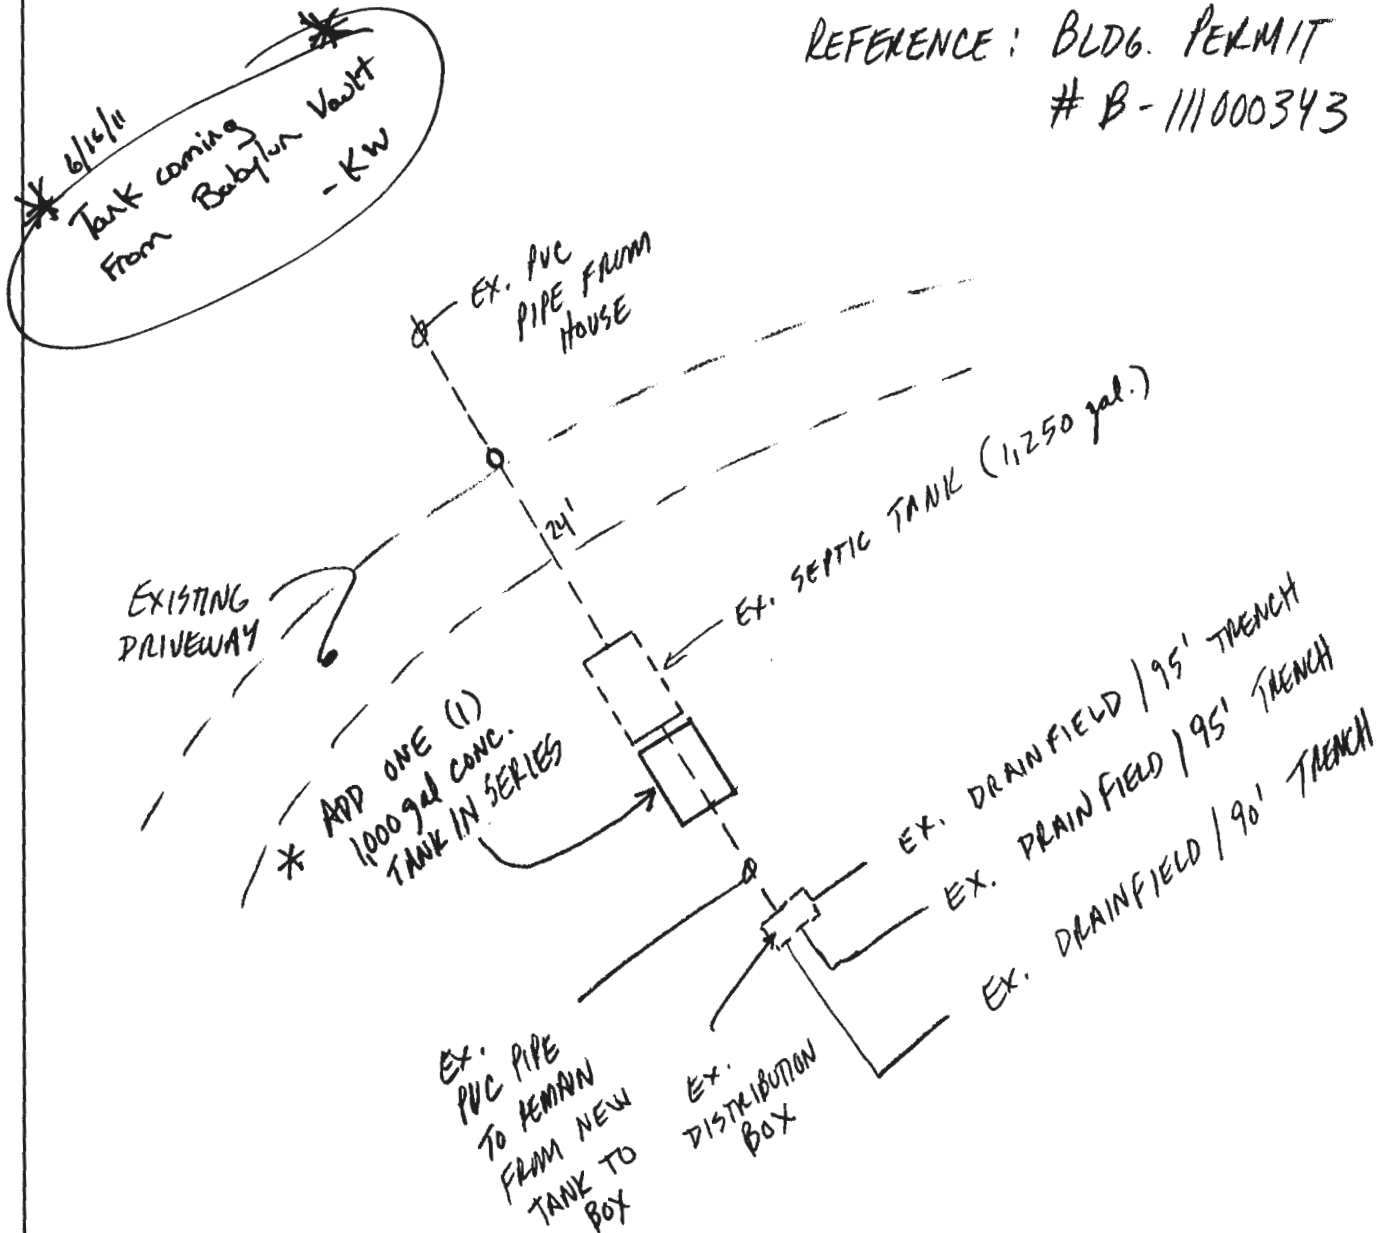 REFERENCE: BLDG. PERMIT
# B-111000343
6/15/11
Tank coming
From Babylon Vault
- KW
EX. PVC
PIPE FROM
HOUSE
24'
EX. SEPTIC TANK (1,250 gal.)
EXISTING
DRIVEWAY
* ADD ONE (1)
1,000 gal CONC.
TANK IN SERIES
EX. DRAINFIELD / 95' TRENCH
EX. DRAINFIELD / 95' TRENCH
EX. DRAINFIELD / 90' TRENCH
EX.
PVC PIPE
TO REMAIN
FROM NEW
TANK TO
BOX
EX.
DISTRIBUTION
BOX